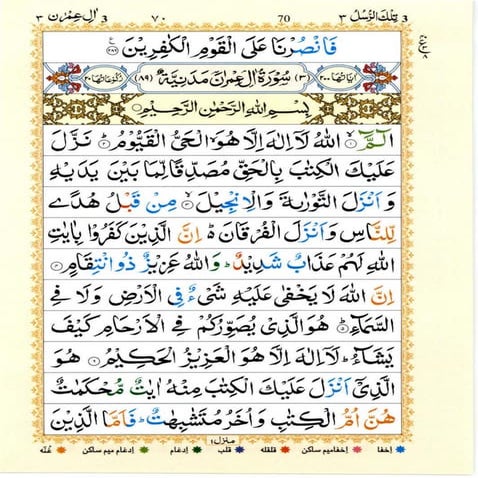 3 تِلْكَ الرُّسُلُ ٣ 70 ٧٠ 3 اٰلِ عِمْرٰن ٣
فَانْصُرْنَا عَلَى الْقَوْمِ الْكٰفِرِيْنَ
اٰيَاتُهَا ٢٠٠ (٣) سُوْرَةُ اٰلِ عِمْرٰنَ مَدَنِيَّةٌ (٨٩) رُكُوْعَاتُهَا ٢٠
بِسْمِ اللهِ الرَّحْمٰنِ الرَّحِيْمِ
الٓمَّٓ ۙ‏ اللهُ لَاۤ اِلٰهَ اِلَّا هُوَ ۙ الْحَىُّ الْقَيُّوْمُ ؕ‏ نَزَّلَ
عَلَيْكَ الْكِتٰبَ بِالْحَقِّ مُصَدِّقًا لِّمَا بَيْنَ يَدَيْهِ
وَاَنْزَلَ التَّوْرٰٮةَ وَالْاِنْجِيْلَ ۙ‏ مِنْ قَبْلُ هُدًى
لِّلنَّاسِ وَاَنْزَلَ الْفُرْقَانَ ؕ اِنَّ الَّذِيْنَ كَفَرُوْا بِاٰيٰتِ
اللهِ لَهُمْ عَذَابٌ شَدِيْدٌ ؕ وَاللهُ عَزِيْزٌ ذُو انْتِقَامٍ ؕ
اِنَّ اللهَ لَا يَخْفٰى عَلَيْهِ شَىْءٌ فِى الْاَرْضِ وَلَا فِى
السَّمَآءِ ؕ‏ هُوَ الَّذِىْ يُصَوِّرُكُمْ فِى الْاَرْحَامِ كَيْفَ
يَشَآءُ ؕ لَاۤ اِلٰهَ اِلَّا هُوَ الْعَزِيْزُ الْحَكِيْمُ ‏ هُوَ
الَّذِىْۤ اَنْزَلَ عَلَيْكَ الْكِتٰبَ مِنْهُ اٰيٰتٌ مُّحْكَمٰتٌ
هُنَّ اُمُّ الْكِتٰبِ وَاُخَرُ مُتَشٰبِهٰتٌ ؕ فَاَمَّا الَّذِيْنَ
منزل ۱
اخفا اخفامیم ساکن قلقله قلب ادغام ادغام میم ساکن غنّه